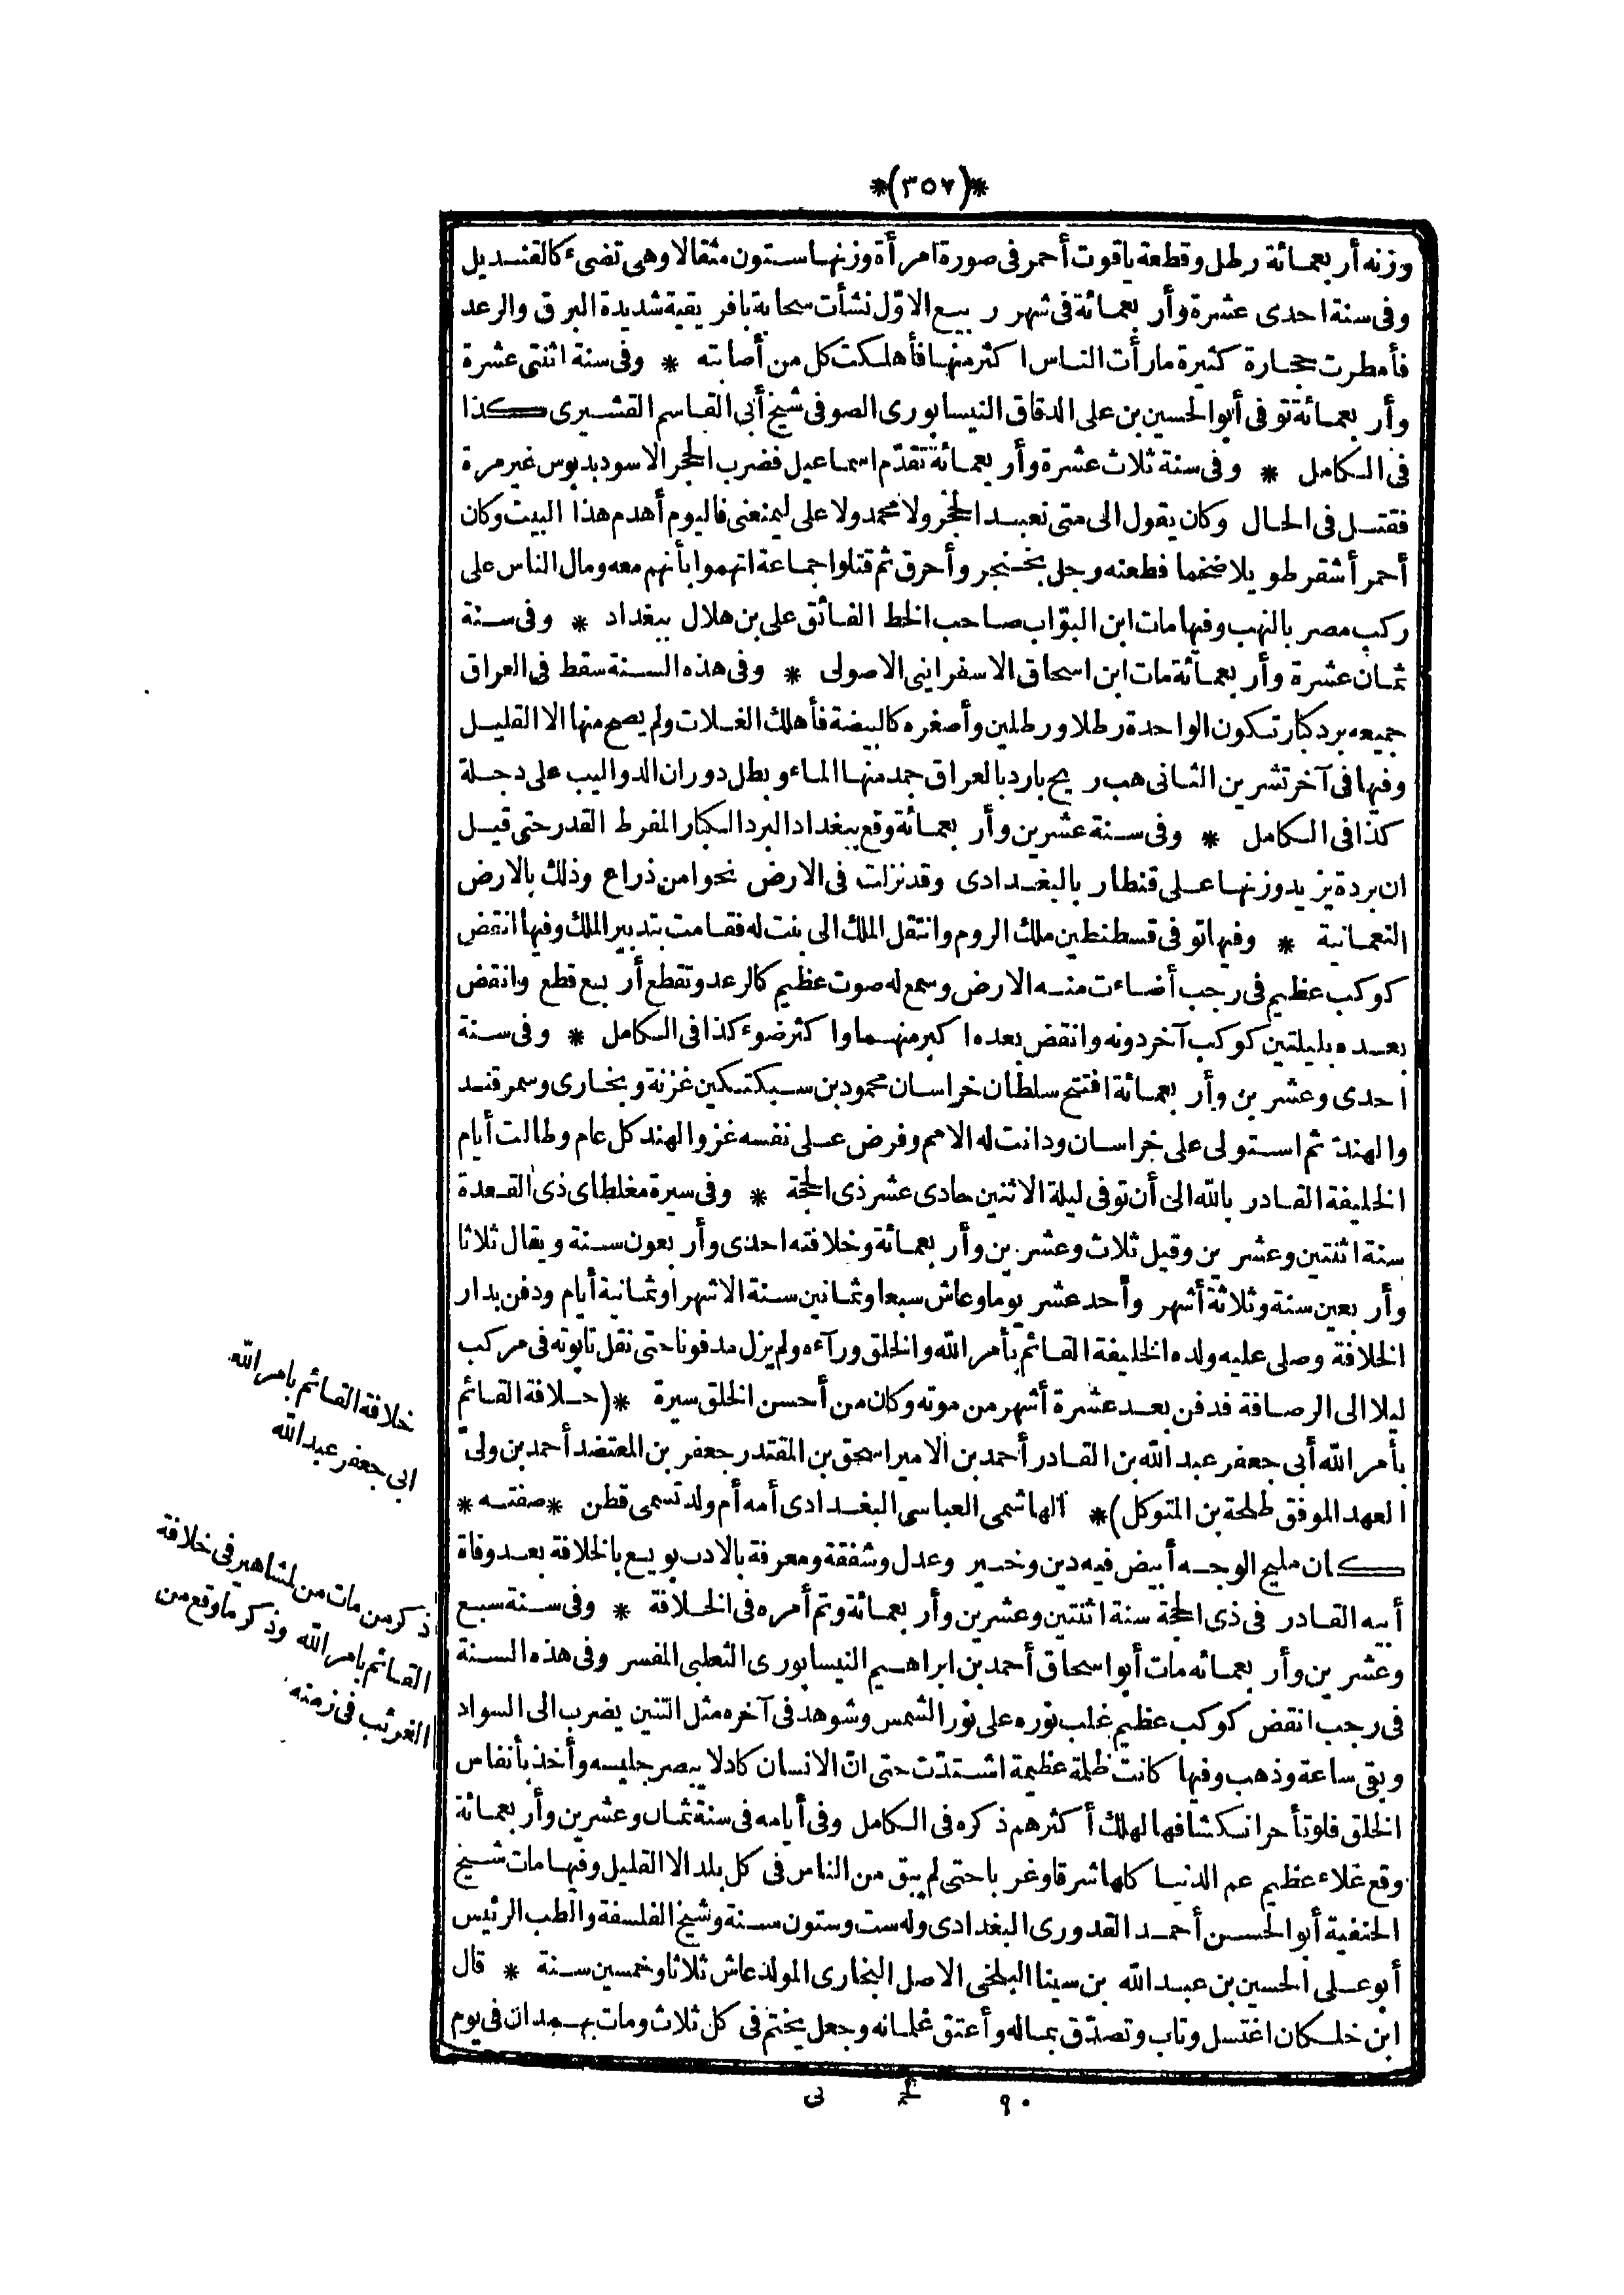 *(٣٥٧)*
وزنه أربعمائة رطل وقطعة ياقوت أحمر فى صورة امرأة وزنها ستون مثقالا وهى تضىء كالقنديل
وفى سنة احدى عشرة وأربعمائة فى شهر ربيع الاوّل نشأت سحابة بافريقية شديدة البرق والرعد
فأمطرت حجارة كثيرة ما رأت الناس اكثر منها فأهلكت كل من أصابته * وفى سنة اثنتى عشرة
وأربعمائة توفى أبو الحسين بن على الدقاق النيسابورى الصوفى شيخ أبى القاسم القشيرى كذا
فى الكامل * وفى سنة ثلاث عشرة وأربعمائة تقدّم اسماعيل فضرب الحجر الاسود بدبوس غير مرة
فقتل فى الحال وكان يقول الى متى نعبد الحجر ولا محمد ولا على ليمنعنى فاليوم أهدم هذا البيت وكان
أحمر أشقر طويلا ضخما فطعنه رجل بخنجر وأحرق ثم قتلوا جماعة اتهموا بأنهم معه ومال الناس على
ركب مصر بالنهب وفيها مات ابن البوّاب صاحب الخط الفائق على بن هلال ببغداد * وفى سنة
ثمان عشرة وأربعمائة مات ابن اسحاق الاسفراينى الاصولى * وفى هذه السنة سقط فى العراق
جميعه برد كبار تكون الواحدة رطلا ورطلين وأصغره كالبيضة فأهلك الغلات ولم يصح منها الا القليل
وفيها فى آخر تشرين الثانى هب ريح بارد بالعراق جمد منها الماء وبطل دوران الدواليب على دجلة
كذا فى الكامل * وفى سنة عشرين وأربعمائة وقع ببغداد البرد الكبار المفرط القدر حتى قيل
ان بردة يزيد وزنها على قنطار بالبغدادى وقد نزلت فى الارض نحوا من ذراع وذلك بالارض
النعمانية * وفيها توفى قسطنطين ملك الروم وانتقل الملك الى بنت له فقامت بتدبير الملك وفيها انقض
كوكب عظيم فى رجب أضاءت منه الارض وسمع له صوت عظيم كالرعد وتقطع أربع قطع وانقض
بعده بليلتين كوكب آخر دونه وانقض بعده اكبر منهما واكثر ضوء كذا فى الكامل * وفى سنة
احدى وعشرين وأربعمائة افتتح سلطان خراسان محمود بن سبكتكين غزنة وبخارى وسمرقند
والهند ثم استولى على خراسان ودانت له الامم وفرض على نفسه غزو الهند كل عام وطالت أيام
الخليفة القادر بالله الى أن توفى ليلة الاثنين حادى عشر ذى الحجة * وفى سيرة مغلطاى ذى القعدة
سنة اثنتين وعشرين وقيل ثلاث وعشرين وأربعمائة وخلافته احدى وأربعون سنة ويقال ثلاثا
وأربعين سنة وثلاثة أشهر وأحد عشر يوما وعاش سبعا وثمانين سنة الا شهرا وثمانية أيام ودفن بدار
الخلافة وصلى عليه ولده الخليفة القائم بأمر الله والخلق ورآءه ولم يزل مدفونا حتى نقل تابوته فى مركب
ليلا الى الرصافة فدفن بعد عشرة أشهر من موته وكان من أحسن الخلق سيرة *(خلافة القائم
بأمر الله أبى جعفر عبد الله بن القادر أحمد بن الامير اسحق بن المقتدر جعفر بن المعتضد أحمد بن ولىّ
العهد الموفق طلحة بن المتوكل)* الهاشمى العباسى البغدادى أمه أم ولد تسمى قطن *صفته*
كان مليح الوجه أبيض فيه دين وخير وعدل وشفقة ومعرفة بالادب بويع بالخلافة بعد وفاة
أبيه القادر فى ذى الحجة سنة اثنتين وعشرين وأربعمائة وتم أمره فى الخلافة * وفى سنة سبع
وعشرين وأربعمائه مات أبو اسحاق أحمد بن ابراهيم النيسابورى الثعلبى المفسر وفى هذه السنة
فى رجب انقض كوكب عظيم غلب نوره على نور الشمس وشوهد فى آخره مثل التنين يضرب الى السواد
وبقى ساعة وذهب وفيها كانت ظلمة عظيمة اشتدّت حتى انّ الانسان كاد لا يبصر جليسه وأخذ بأنفاس
الخلق فلو تأخر انكشافها لهلك أكثرهم ذكره فى الكامل وفى أيامه فى سنة ثمان وعشرين وأربعمائة
وقع غلاء عظيم عم الدنيا كلها شرقا وغربا حتى لم يبق من الناس فى كل بلد الا القليل وفيها مات شيخ
الحنفية أبو الحسن أحمد القدورى البغدادى وله ست وستون سنة وشيخ الفلسفة والطب الرئيس
أبو على الحسين بن عبد الله بن سينا البلخى الاصل البخارى المولد عاش ثلاثا وخمسين سنة * قال
ابن خلكان اغتسل وتاب وتصدّق بماله وأعتق غلمانه وجعل يختم فى كل ثلاث ومات بهمدان فى يوم
خلافة القائم بامر الله
ابى جعفر عبد الله
ذكر من مات من المشاهير فى خلافة
القائم بامر الله وذكر ما وقع من
الغرئب فى زمنه
٩٠ نى